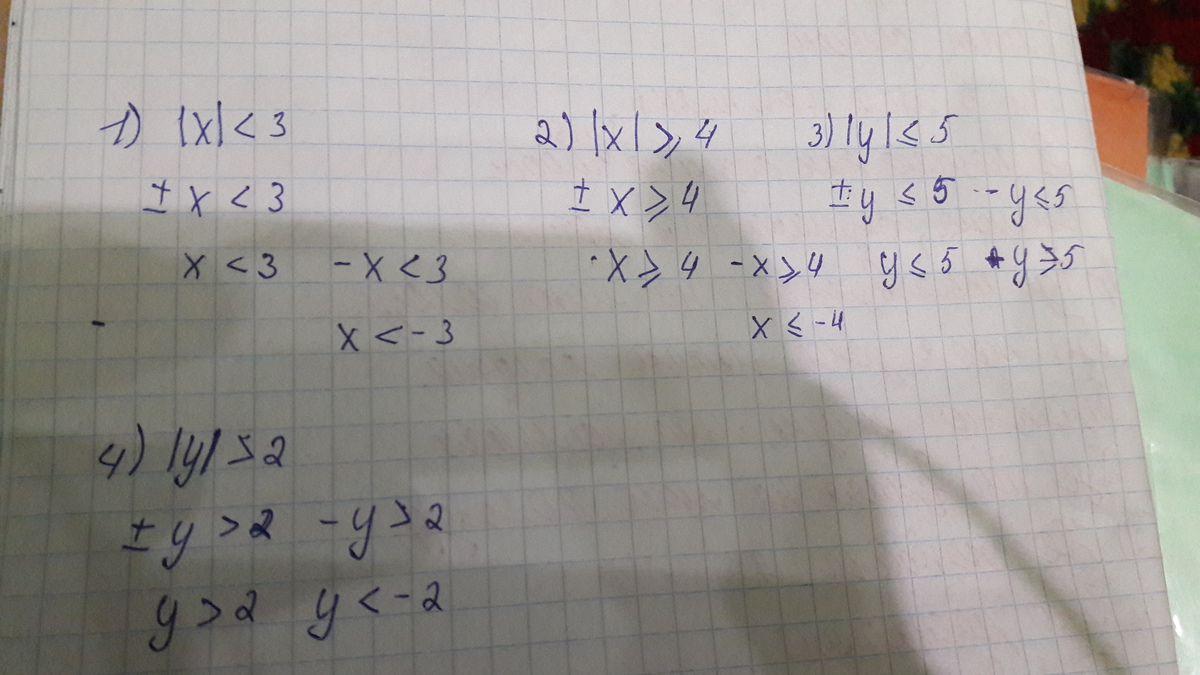 1) |x| < 3
± x < 3
x < 3 - x < 3
x < - 3
2) |x| ⩾ 4
± x ⩾ 4
x ⩾ 4 - x ⩾ 4
x ⩽ -4
3) |y| ⩽ 5
± y ⩽ 5 - y ⩽ 5
y ⩽ 5 y ⩾ 5
4) |y| > 2
± y > 2 - y > 2
y > 2 y < - 2